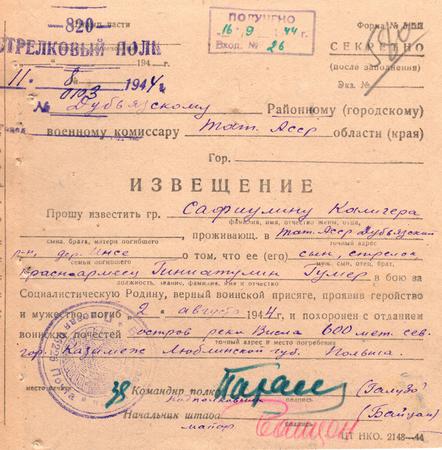 ПОЛУЧЕНО
16·9 44 г.
Вход. № 26
580
части
Форма №
820
СТРЕЛКОВЫЙ ПОЛК
СЕКРЕТНО
(после заполнения)
11. 8 1944
Экз. №
0193
№ Дубъязскому Районному (городскому)
военному комиссару Тат. Асср области (края)
Гор.
ИЗВЕЩЕНИЕ
Прошу известить гр. Сафиулину Камигера
фамилия, имя, отчество жены, отца,
проживающ. в Тат. Асср Дубъязский
сына, брата, матери погибшего
точный адрес
р-н, дер. о том, что ее (его) сын, стрелок
семьи погибшего
муж, сын, отец, брат
красноармеец Гиниатулин Гумер в бою за
должность, звание, фамилия, имя и отчество
Социалистическую Родину, верный воинской присяге, проявив геройство
и мужество, погиб 2 августа 1944 г. и похоронен с отданием
воинских почестей остров реки Висла 600 мет. сев.
точный адрес и место погребения
гор. Казимеж Люблинской губ. Польша.
место печати
Командир полка
подполковник (Галузо)
подпись
Начальник штаба (Байцан)
майор
подпись
ЦТ НКО. 2148—44